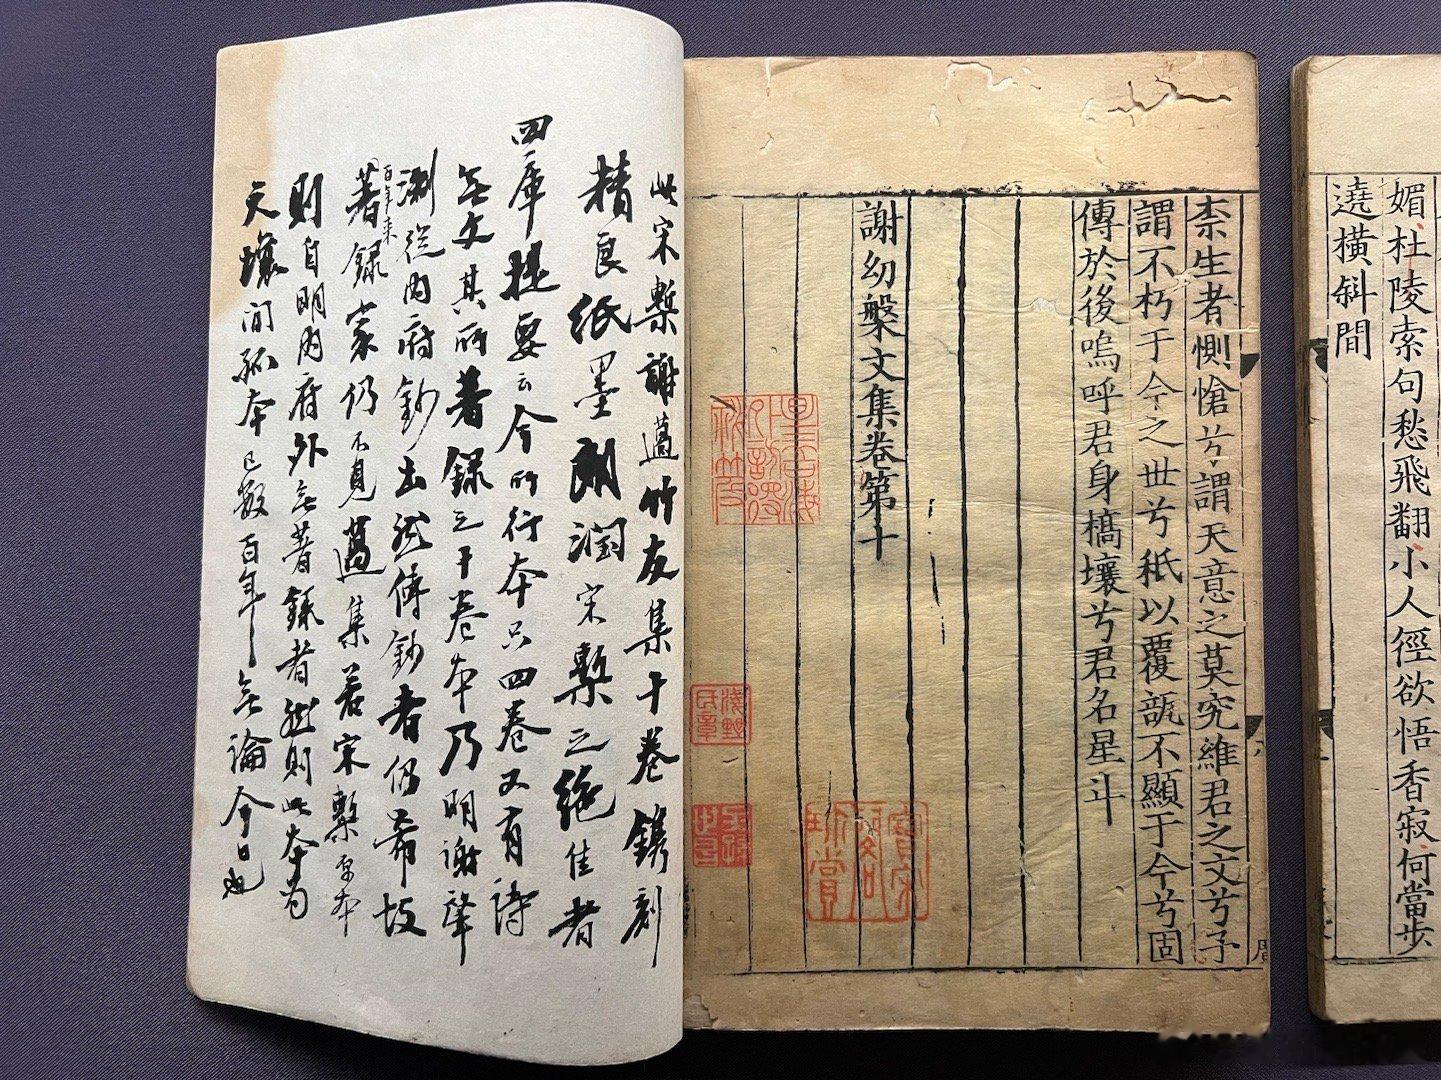 媚杜陵索句愁飛翻小人徑欲悟香寂何當步
遶橫斜間
柰生者惻愴兮謂天意之莫究維君之文兮子
謂不朽于今之世兮秖以覆瓿不顯于今兮固
傳於後嗚呼君身槁壤兮君名星斗
謝幼槃文集卷第十
星吾海
外訪得
秘笈
寶宋
閣
珍賞
淺野
氏章
此宋槧謝薖竹友集十卷鐫刻
精良紙墨朗潤宋槧之絕佳者
四庫提要云今所行本只四卷又有詩
無文其所著錄之十卷本乃明謝肇
淛從內府鈔出然傳鈔者仍希故
百年來
著錄家仍不見薖集若宋槧原本
則自明內府外無著錄者然則此本為
天壤間孤本已數百年無論今日也